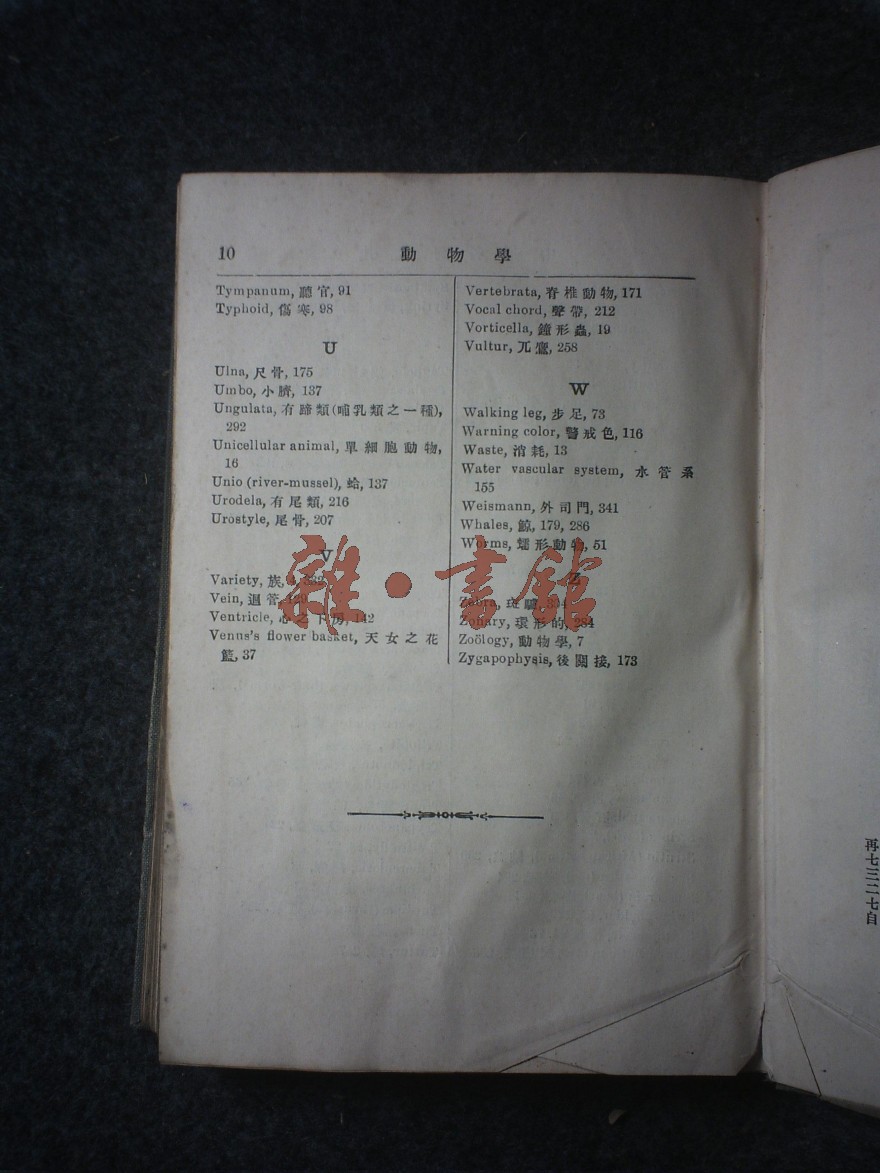 10
動物學
Tympanum, 聽官, 91
Typhoid, 傷寒, 98
U
Ulna, 尺骨, 175
Umbo, 小臍, 137
Ungulata, 有蹄類(哺乳類之一種),
292
Unicellular animal, 單細胞動物,
16
Unio (river-mussel), 蛤, 137
Urodela, 有尾類, 216
Urostyle, 尾骨, 207
V
Variety, 族,
Vein, 迴管,
Ventricle, 心之下房, 142
Venus's flower basket, 天女之花
籃, 37
Vertebrata, 脊椎動物, 171
Vocal chord, 聲帶, 212
Vorticella, 鐘形蟲, 19
Vultur, 兀鷹, 258
W
Walking leg, 步足, 73
Warning color, 警戒色, 116
Waste, 消耗, 13
Water vascular system, 水管系
155
Weismann, 外司門, 341
Whales, 鯨, 179, 286
Worms, 蠕形動物, 51
Z
Zebra, 斑驢,
Zonary, 環形的, 284
Zoölogy, 動物學, 7
Zygapophysis, 後關接, 173
雜·書館
再七三二七自